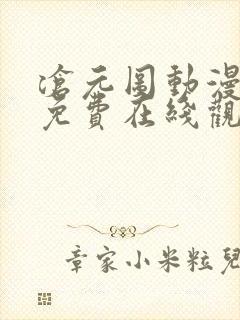 滄元圖動漫
免費在綫觀
章家小米粒兒